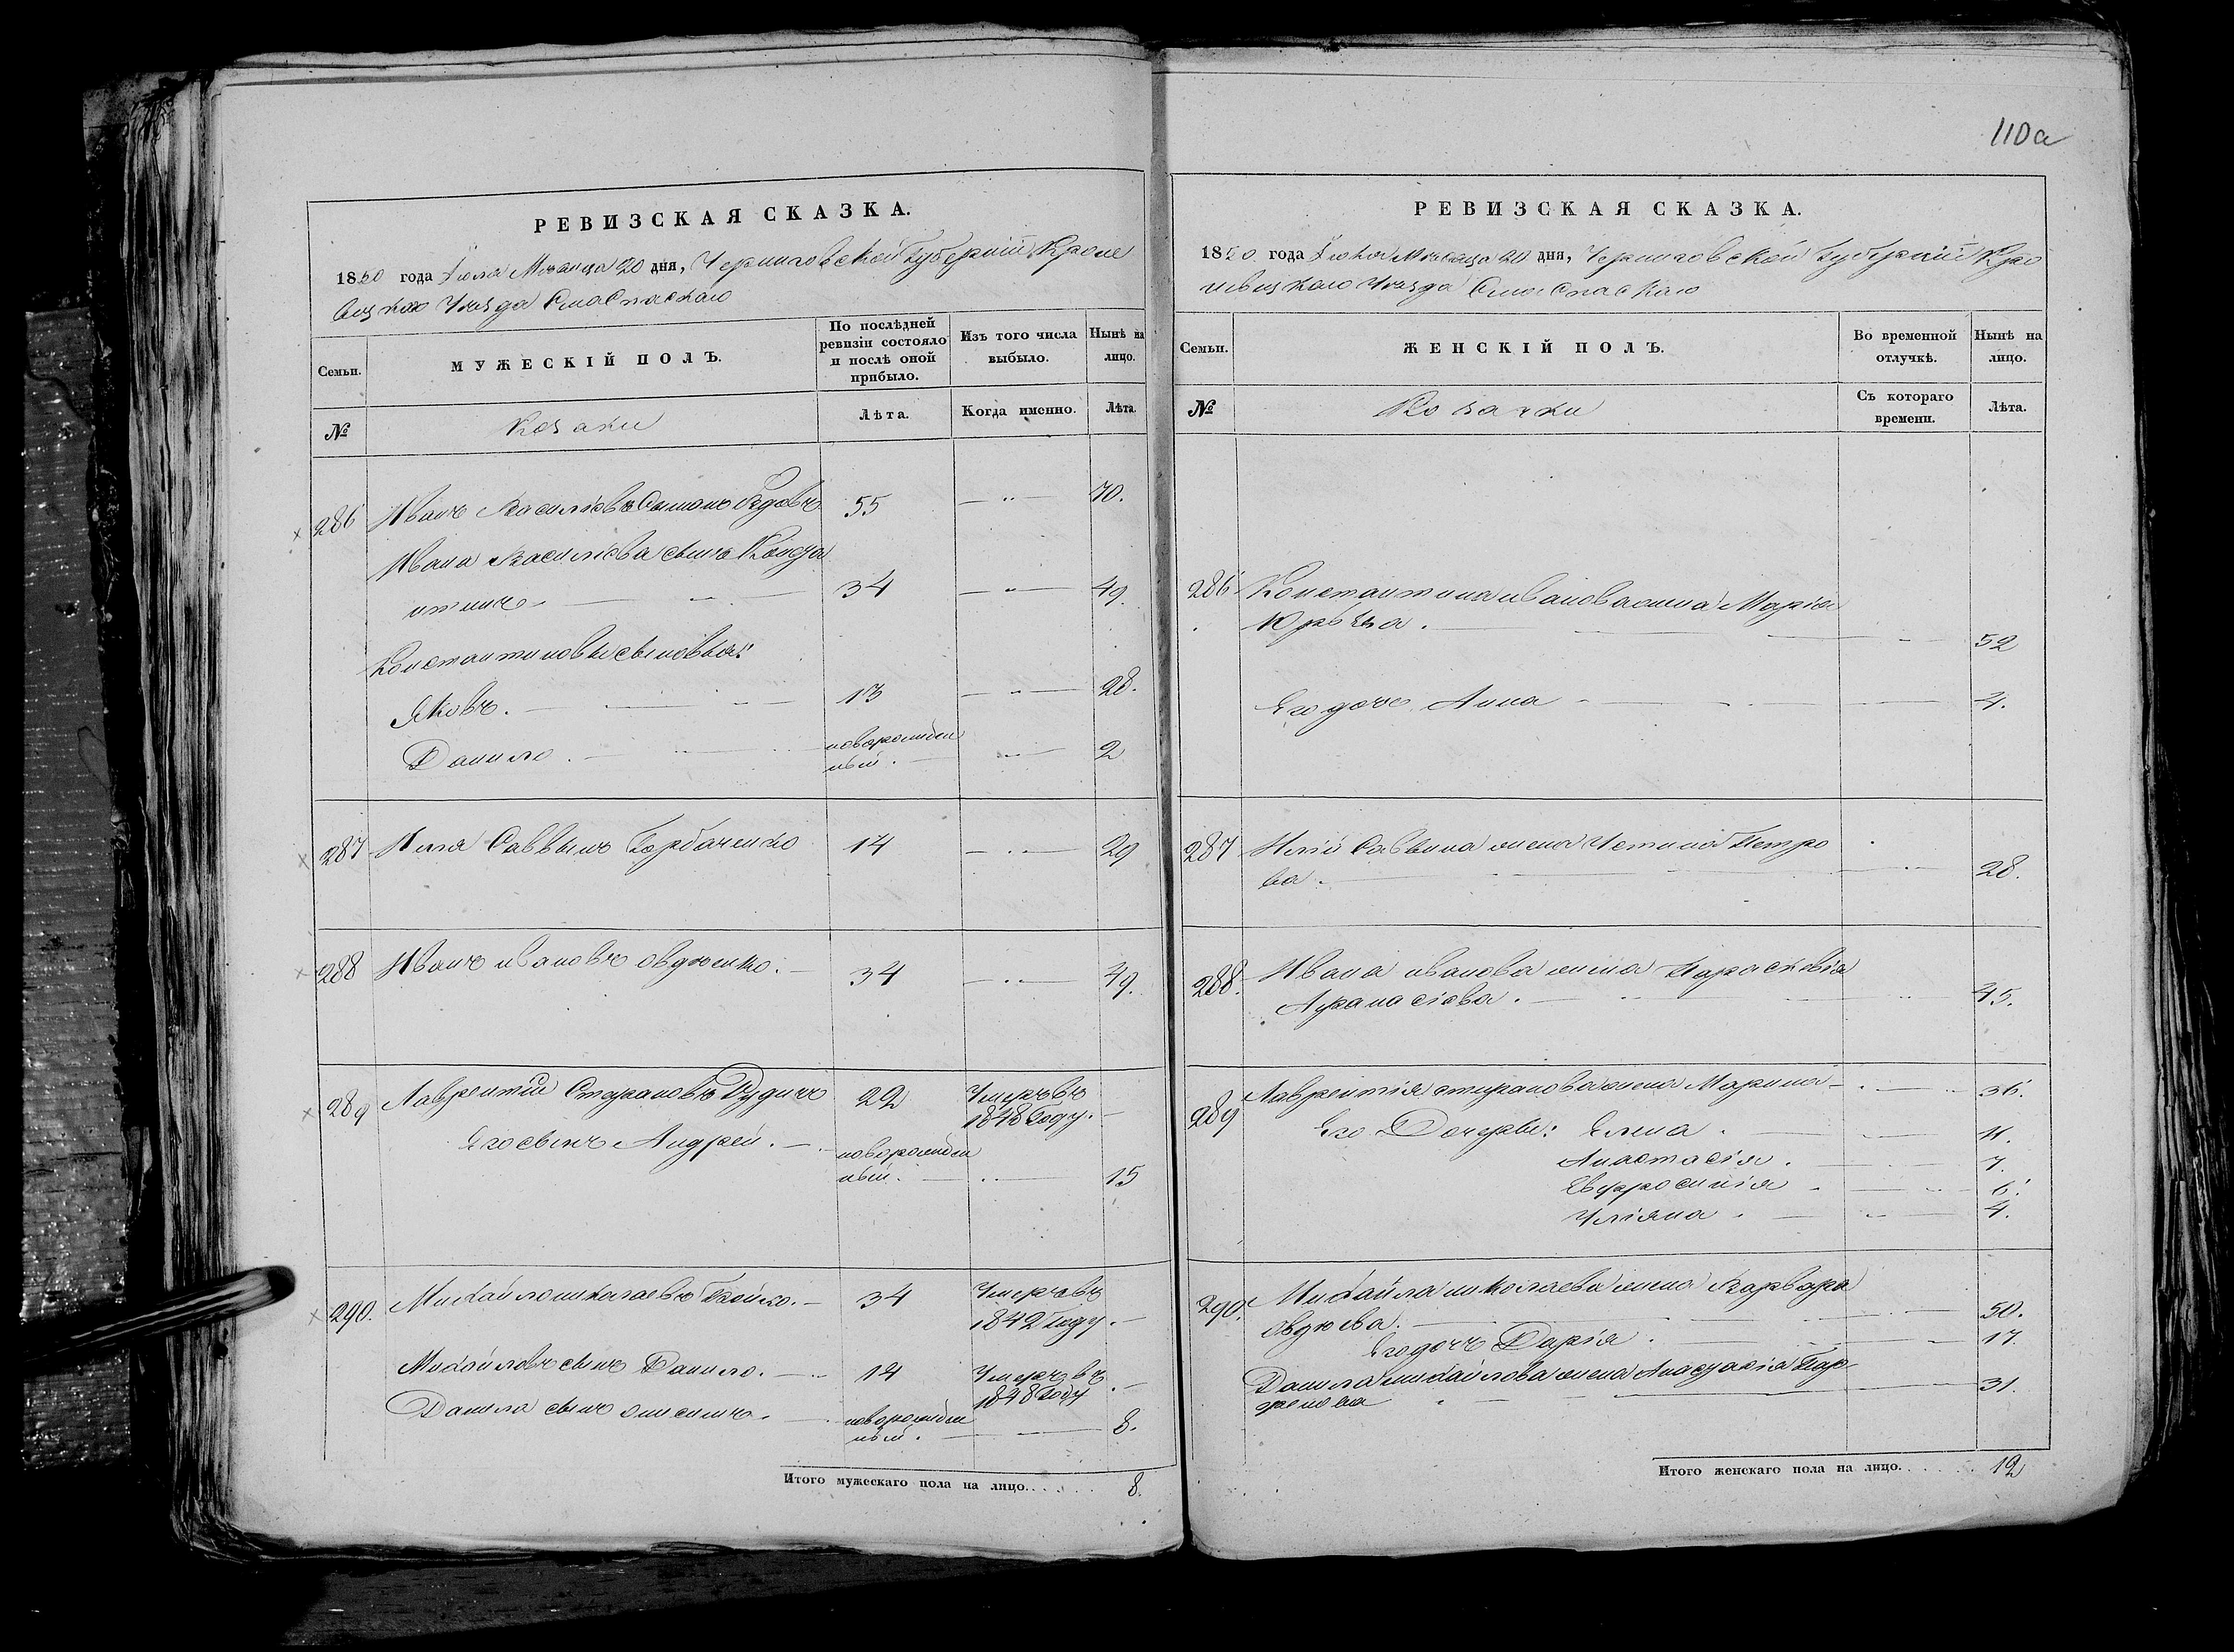 110а
РЕВИЗСКАЯ СКАЗКА.
1850 года Июля Месяца 20 дня, Черниговской Губернии Кроле
вецкаго Уезда Села Спаскаго
Семьи. МУЖЕСКІЙ ПОЛЪ. По послѣдней ревизіи состояло и послѣ оной прибыло. Изъ того числа выбыло. Нынѣ на лицо.
№ Козаки Лѣта. Когда именно. Лѣта.
286 Иванъ Василіевъ 55 — " — 70.
Ивана Василіева сынъ Конста
нтинъ 34 — " — 49.
Константиновы сыновья:
Яковъ. 13 — " — 28.
Данило. новорожден
ный. — " — 2
287 Илія Саввинъ Горбаченко 14 — " — 29
288 Иванъ Ивановъ Овдіенко. 34 — " — 49.
289 Лаврентій Стефановъ Рудичъ 22 Умеръ въ
1848 Году. —
Его сынъ Андрей. новорожден
ный. — " — 15
290. Михайло Николаевъ Бойко. 34 Умеръ въ
1842 Году. —
Михайловъ сынъ Данило. 14 Умеръ въ
1848 Году —
Данила сынъ Онисимъ. новорожден
ный. — 8.
Итого мужескаго пола на лицо. . . . . . 8.
РЕВИЗСКАЯ СКАЗКА.
1850 года Июля Месяца 20 дня, Черниговской Губернии Кро
левецкаго Уезда Села Спаскаго
Семьи. ЖЕНСКІЙ ПОЛЪ. Во временной отлучкѣ. Нынѣ на лицо.
№ Козачки Съ котораго времени. Лѣта.
286 Константина Иванова жена Марія
Юрьева. 52
Его дочь Анна 4.
287 Иліи Саввина жена Устинія Петро
ва. 28.
288. Ивана Иванова жена Параскевія
Афанасіева. 45.
289 Лаврентія Стефанова жена Марина 36.
Его Дочери: Елена. 11.
Анастасія. 7.
Евфросинія 6.
Уліяна. 4.
290. Михайла Николаева жена Варвара
Овдіева. 50.
Его дочь Дарія. 17.
Данила Михайлова жена Анастасія Пар
фенова 31.
Итого женскаго пола на лицо. . . . . . 12